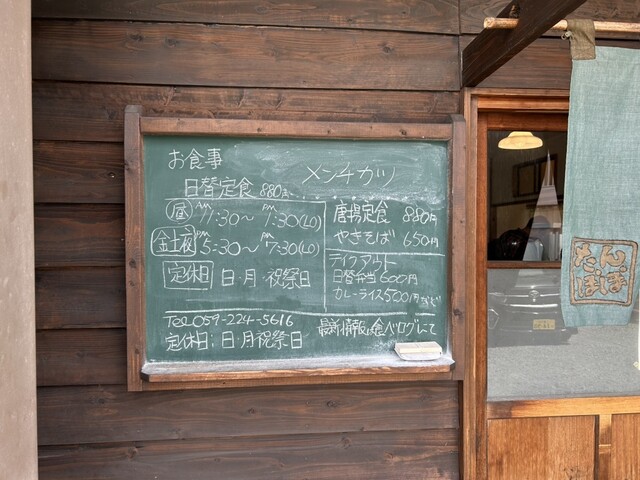 お食事
メンチカツ
日替定食 880円
昼 AM 11:30～PM 1:30(LO)
金土夜 PM 5:30～PM 7:30(LO)
定休日 日・月・祝祭日
唐揚定食 880円
やきそば 650円
テイクアウト
日替弁当 600円
カレーライス500円など
Tel 059-224-5616
最新情報は食べログにて
定休日：日・月・祝祭日
たんぽぽ